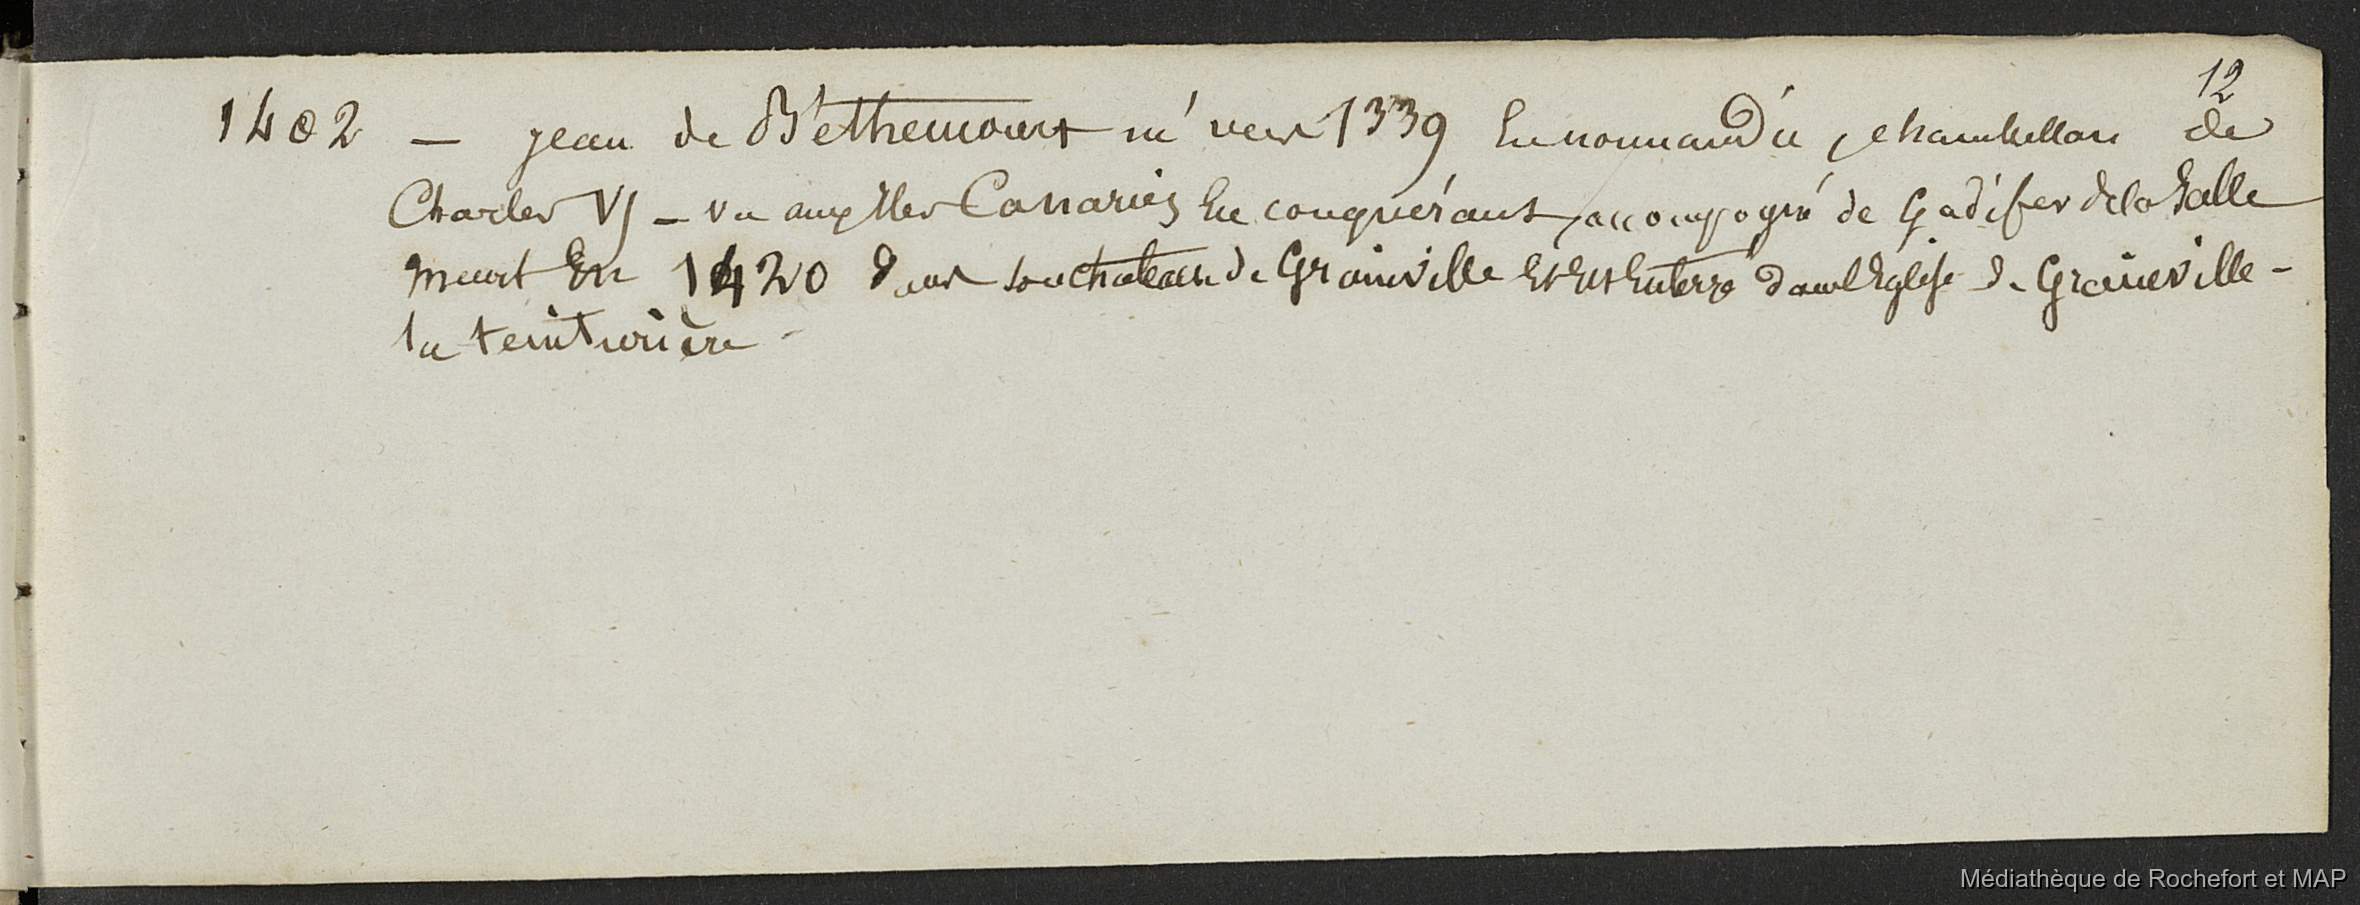 12
1402 — jean de Béthencourt né vers 1339 En normandie, chambellan de
Charles VI — va aux Iles Canaries En conquérant, accompagné de Gadifer de la Salle
Meurt En 1420 dans son chateau de Grainville Et Est Enterré dans l'Eglise de Graineville -
la teinturière -
Médiathèque de Rochefort et MAP